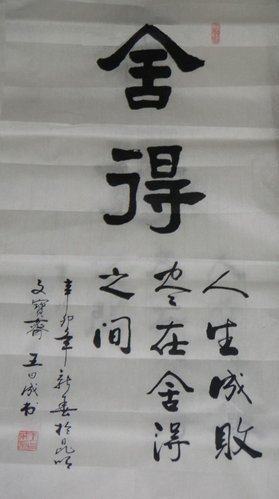 舍得
人生成败
尽在舍得
之间
辛卯年新春於昆明
文寶齋 王日成书